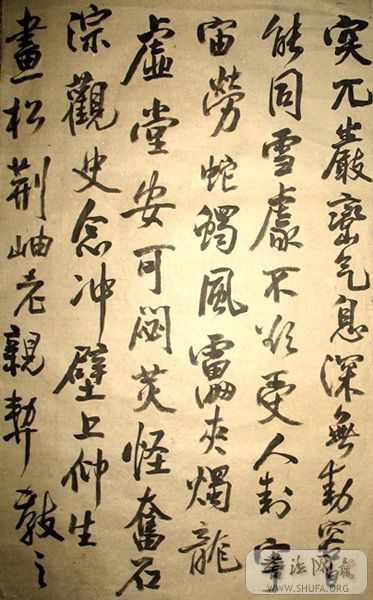 突兀巖巒气息深無動容
能同雪處不欲受人封宇
宙勞蛇蠋風雷夾燭龍
虛堂安可閟莫怪奮石
淙觀史念冲壁上仲生
畫松荊岫老親契教之
书法网
WWW.SHUFA.ORG